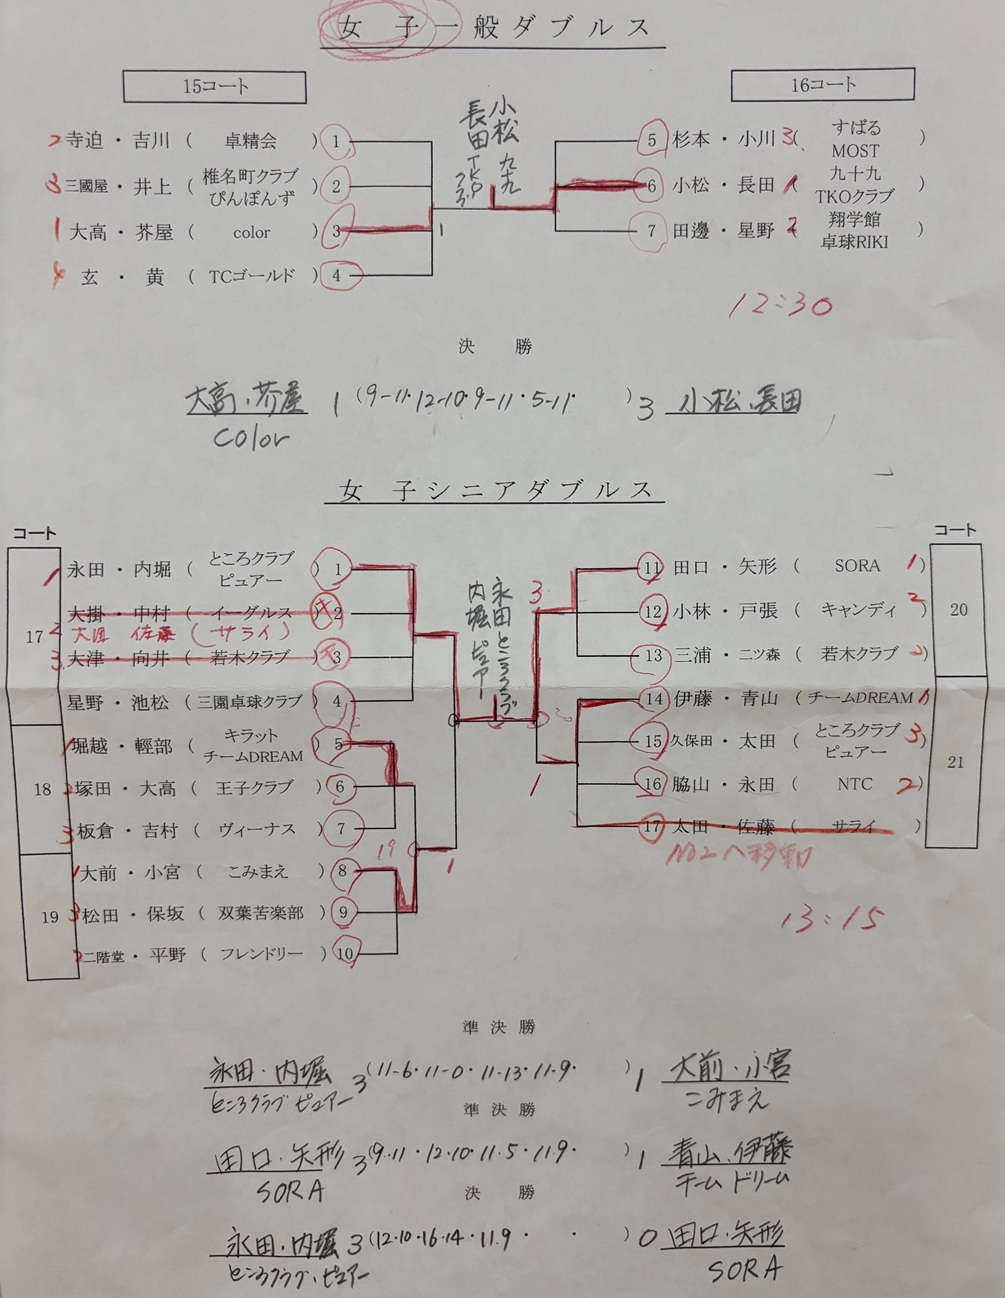 女子一般ダブルス
15コート
16コート
小松 九十九
長田 TKOクラブ
2 寺迫・吉川 ( 卓精会 ) 1
3 三國屋・井上 ( 椎名町クラブ ぴんぽんず ) 2
1 大高・芥屋 ( color ) 3
4 玄・黄 ( TCゴールド ) 4
1
5 杉本・小川 3 ( すばる MOST )
6 小松・長田 1 ( 九十九 TKOクラブ )
7 田邊・星野 2 ( 翔学館 卓球RIKI )
12:30
決勝
大高・芥屋 1 (9-11・12-10・9-11・5-11・ ) 3 小松・長田
color
女子シニアダブルス
コート
コート
17
18
19
20
21
1 永田・内堀 ( ところクラブ ピュアー ) 1
大掛・中村 ( イーグルス ) 2
2 太田 佐藤 (サライ)
3 大津・向井 ( 若木クラブ ) 3
星野・池松 ( 三園卓球クラブ ) 4
1 堀越・輕部 ( キラット チームDREAM ) 5
2 塚田・大高 ( 王子クラブ ) 6
3 板倉・吉村 ( ヴィーナス ) 7
1 大前・小宮 ( こみまえ ) 8
3 松田・保坂 ( 双葉苦楽部 ) 9
2 二階堂・平野 ( フレンドリー ) 10
19
1
永田 ところクラブ
内堀 ピュアー
3
1
11 田口・矢形 ( SORA ) 1
12 小林・戸張 ( キャンディ ) 3
13 三浦・二ツ森 ( 若木クラブ ) 2
14 伊藤・青山 ( チームDREAM ) 1
15 久保田・太田 ( ところクラブ ピュアー ) 3
16 脇山・永田 ( NTC ) 2
17 太田・佐藤 ( サライ )
No2へ移動
13:15
準決勝
永田・内堀 3 (11-6・11-0・11-13・11-9・ ) 1 大前・小宮
ところクラブ ピュアー
こみまえ
準決勝
田口・矢形 3 (9・11・12・10・11・5・11・9・ ) 1 青山・伊藤
SORA
チーム ドリーム
決勝
永田・内堀 3 (12・10・16・14・11・9・ ・ ) 0 田口・矢形
ところクラブ・ピュアー
SORA